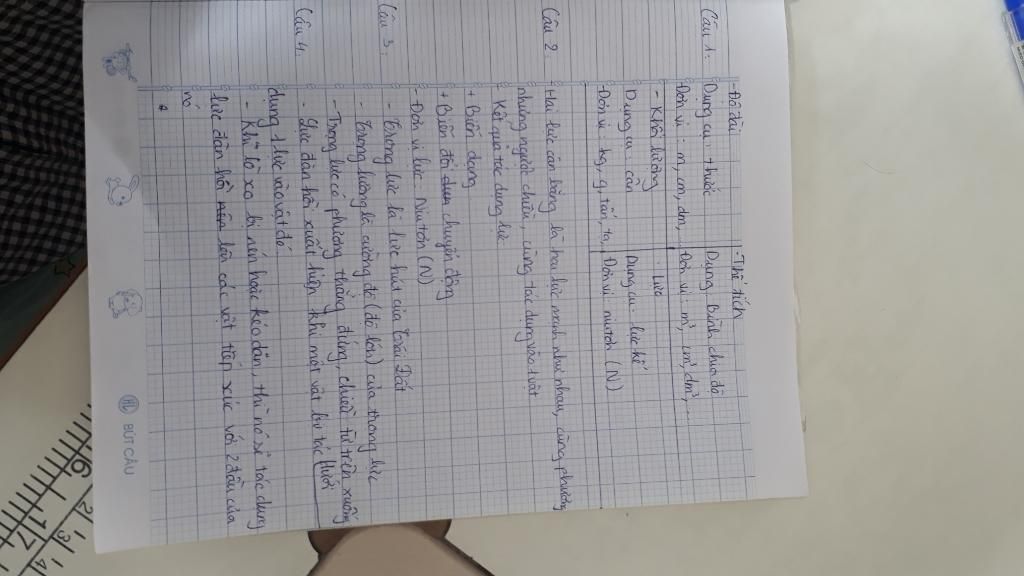 - Độ dài - Thể tích
Câu 1: Dụng cụ: thước Dụng Bình chia độ
Đơn vị: m, cm, dm, ... Đơn vị: m³, cm³, dm³, ...
- Khối lượng Lực
Dụng cụ: cân Dụng cụ: lực kế
- Đơn vị: kg, g, tấn, tạ, Đơn vị: niutơn (N)
Câu 2: - Hai lực cân bằng là hai lực mạnh như nhau, cùng phương
nhưng ngược chiều, cùng tác dụng vào 1 vật
- Kết quả tác dụng lực
+ Biến dạng
+ Biến đổi chuyển động
- Đơn vị lực: Niutơn (N)
Câu 3: - Trọng lực là lực hút của Trái Đất
- Trọng lượng là cường độ (độ lớn) của trọng lực
- Trọng lực có phương thẳng đứng, chiều từ trên xuống
dưới
Câu 4: - Lực đàn hồi xuất hiện khi một vật bị tác
dụng 1 lực vào vật đó
- Khi lò xo bị nén hoặc kéo dãn, thì nó sẽ tác dụng
lực đàn hồi lên các vật tiếp xúc với 2 đầu của
nó
BÚT CÂU
16
17
2
3
4